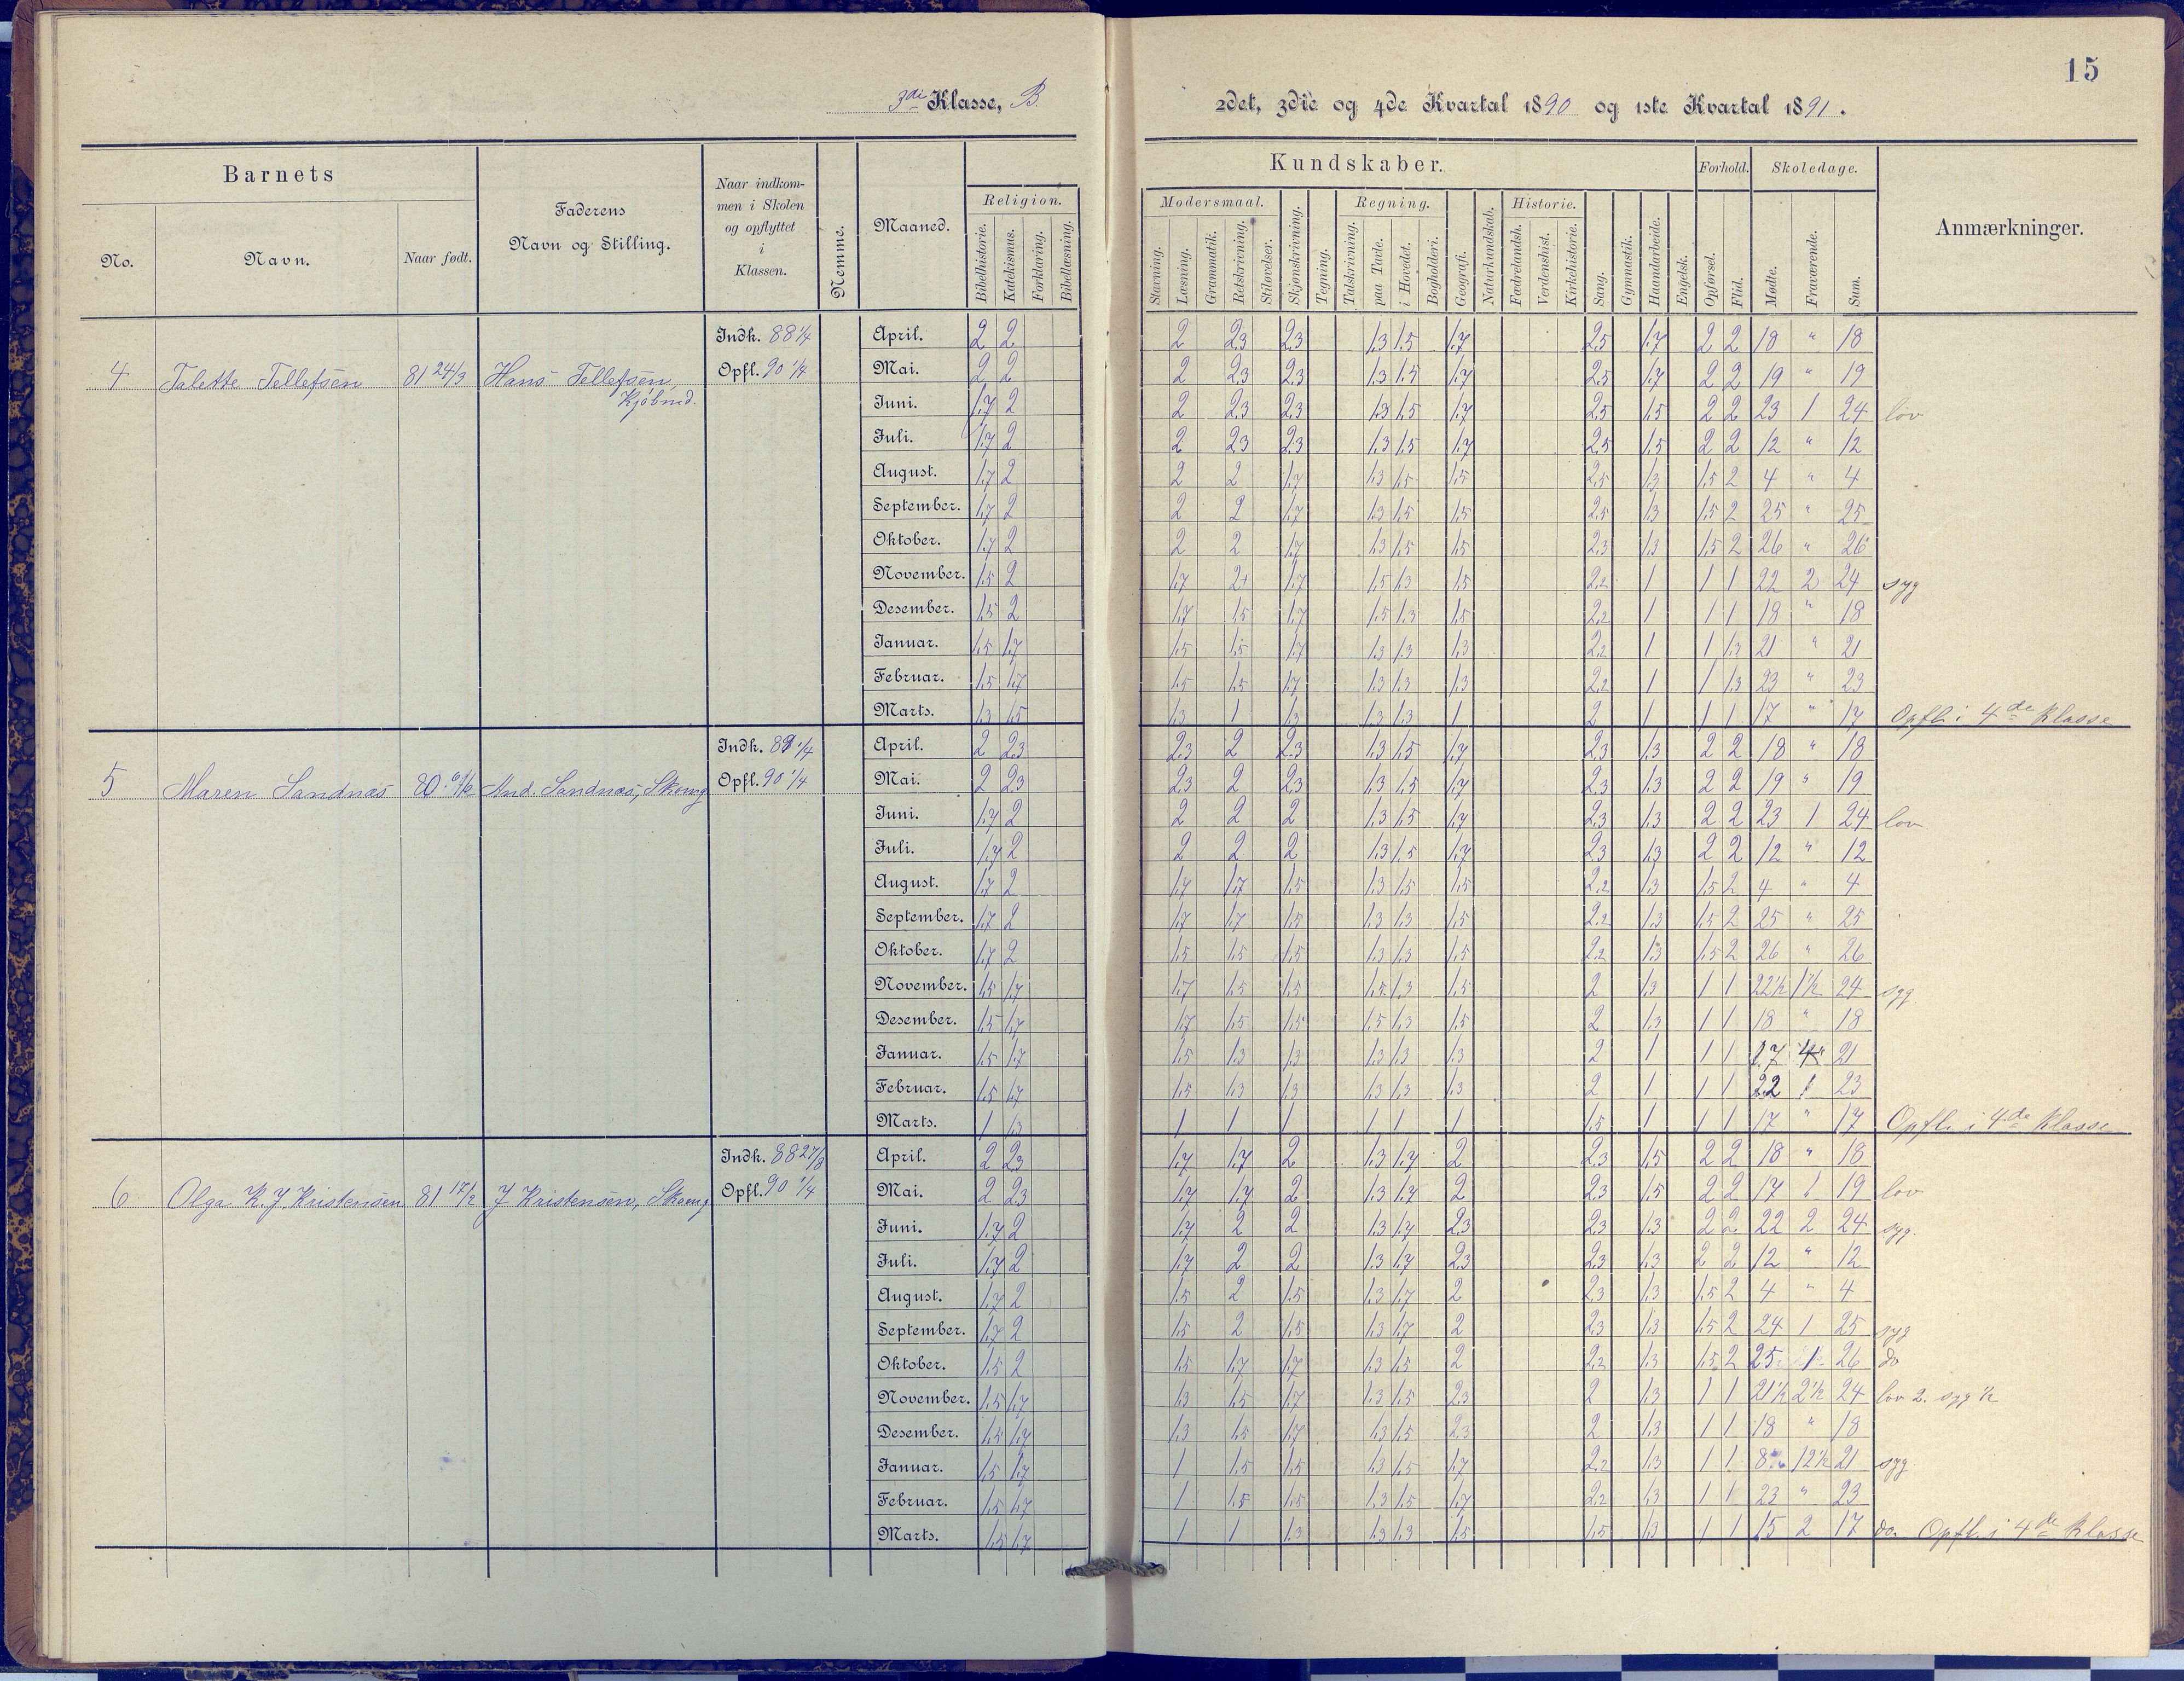 15
3die Klasse, B.
2det, 3die og 4de Kvartal 1890 og 1ste Kvartal 1891.
Barnets
No. Navn. Naar født.
Faderens Navn og Stilling.
Naar indkommen i Skolen og opflyttet i Klassen.
Nemme.
Maaned.
Kundskaber.
Religion.
Bibelhistorie. Katekismus. Forklaring. Bibellæsning.
Modersmaal.
Stavning. Læsning. Grammatik. Retskrivning. Stiløvelser.
Skjønskrivning. Tegning.
Regning.
Talskrivning. paa Tavle. i Hovedet. Bogholderi.
Geografi. Naturkundskab.
Historie.
Fædrelandsh. Verdenshist. Kirkehistorie.
Sang. Gymnastik. Haandarbeide. Engelsk.
Forhold.
Opførsel. Flid.
Skoledage.
Mødte. Fraværende. Sum.
Anmærkninger.
4 Talette Tellefsen 81 24/3 Hans Tellefsen, Kjøbmd.
Indk. 88 1/4
Opfl. 90 1/4
April. 2 2 2 2,3 2,3 1,3 1,5 1,7 2,5 1,7 2 2 18 " 18
Mai. 2 2 2 2,3 2,3 1,3 1,5 1,7 2,5 1,7 2 2 19 " 19
Juni. 1,7 2 2 2,3 2,3 1,3 1,5 1,7 2,5 1,5 2 2 23 1 24 lov
Juli. 1,7 2 2 2,3 2,3 1,3 1,5 1,7 2,5 1,5 2 2 12 " 12
August. 1,7 2 2 2 1,7 1,3 1,5 1,5 2,5 1,3 1,5 2 4 " 4
September. 1,7 2 2 2 1,7 1,3 1,5 1,5 2,5 1,3 1,5 2 25 " 25
Oktober. 1,7 2 2 2 1,7 1,3 1,5 1,5 2,3 1,3 1,5 2 26 " 26
November. 1,5 2 1,7 2+ 1,7 1,5 1,3 1,5 2,2 1 1 1 22 2 24 syg
Desember. 1,5 2 1,7 1,5 1,7 1,5 1,3 1,5 2,2 1 1 1 18 " 18
Januar. 1,5 1,7 1,5 1,5 1,7 1,3 1,3 1,3 2,2 1 1 1,3 21 " 21
Februar. 1,5 1,7 1,5 1,5 1,7 1,3 1,3 1,3 2,2 1 1 1,3 23 " 23
Marts. 1,3 1,5 1,3 1 1,3 1,3 1,3 1 2 1 1 1 17 " 17 Opfl. i 4de Klasse
5 Maren Sandnæs 80 And. Sandnæs, Skomg
Indk. 89 1/4
Opfl. 90 1/4
April. 2 2,3 2,3 2 2,3 1,3 1,5 1,7 2,3 1,3 2 2 18 " 18
Mai. 2 2,3 2,3 2 2,3 1,3 1,5 1,7 2,3 1,3 2 2 19 " 19
Juni. 1,7 2 2 2 2 1,3 1,5 1,7 2,3 1,3 2 2 23 1 24 lov
Juli. 1,7 2 2 2 2 1,3 1,5 1,7 2,3 1,3 2 2 12 " 12
August. 1,7 2 1,7 1,7 1,5 1,3 1,5 1,5 2,2 1,3 1,5 2 4 " 4
September. 1,7 2 1,7 1,7 1,5 1,3 1,3 1,5 2,2 1,3 1,5 2 25 " 25
Oktober. 1,7 2 1,5 1,5 1,5 1,3 1,3 1,5 2,2 1,3 1,5 2 26 " 26
November. 1,5 1,7 1,7 1,5 1,5 1,5 1,3 1,5 2 1,3 1 1 22½ 1½ 24 syg
Desember. 1,5 1,7 1,7 1,5 1,5 1,5 1,3 1,5 2 1,3 1 1 18 " 18
Januar. 1,5 1,7 1,5 1,3 1,3 1,3 1,3 1,3 2 1 1 1 17 4 21
Februar. 1,5 1,7 1,5 1,3 1,3 1,3 1,3 1,3 2 1 1 1 22 1 23
Marts. 1 1,3 1 1 1 1 1 1 1,5 1 1 1 17 " 17 Opfl. i 4de Klasse
6 Olga K. J. Kristensen 81 17/2 J Kristensen, Skomg
Indk. 88 27/8
Opfl. 90 1/4
April. 2 2,3 1,7 1,7 2 1,3 1,7 2 2,3 1,5 2 2 18 " 18
Mai. 2 2,3 1,7 1,7 2 1,3 1,7 2 2,3 1,5 2 2 17 1 19 lov
Juni. 1,7 2 1,7 2 2 1,3 1,7 2,3 2,3 1,3 2 2 22 2 24 syg.
Juli. 1,7 2 1,7 2 2 1,3 1,7 2,3 2,3 1,3 2 2 12 " 12
August. 1,7 2 1,5 2 1,5 1,3 1,7 2 2,3 1,3 1,5 2 4 " 4
September. 1,7 2 1,5 2 1,5 1,3 1,7 2 2,3 1,3 1,5 2 24 1 25 syg
Oktober. 1,5 2 1,5 1,7 1,7 1,3 1,5 2 2,2 1,3 1,5 2 25 1 26 do
November. 1,5 1,7 1,3 1,5 1,7 1,3 1,5 2,3 2 1,3 1 1 21½ 2½ 24 lov 2. syg ½
Desember. 1,5 1,7 1,3 1,5 1,7 1,3 1,5 2,3 2 1,3 1 1 18 " 18
Januar. 1,5 1,7 1 1,5 1,5 1,3 1,5 1,7 2,2 1,3 1 1 8 12½ 21 syg
Februar. 1,5 1,7 1 1,5 1,5 1,3 1,5 1,7 2,2 1,3 1 1 23 " 23
Marts. 1,5 1,7 1 1 1,3 1,3 1,3 1,5 1,5 1,3 1 1 15 2 17 do. Opfl. i 4de Klasse